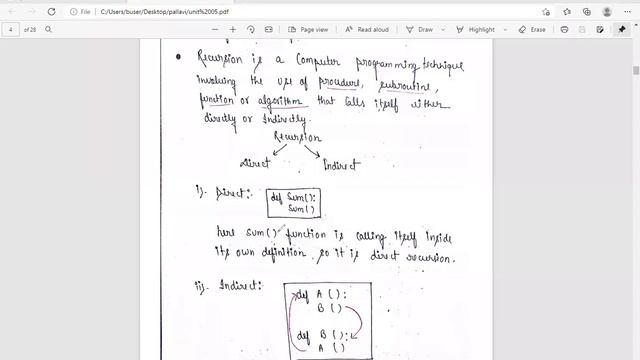 C:/Users/buser/Desktop/pallavi/unit%2005.pdf
4 of 28
Page view
Read aloud
Draw
Highlight
Erase
• Recursion is a Computer programming technique
involving the use of procedure, subroutine,
function or algorithm that calls itself either
directly or Indirectly.
Recursion
Direct Indirect
i). Direct:-
def Sum():
Sum()
here sum() function is calling itself inside
its own definition, so it is direct recursion.
ii). Indirect:
def A ():
B ()
def B ():
A ()